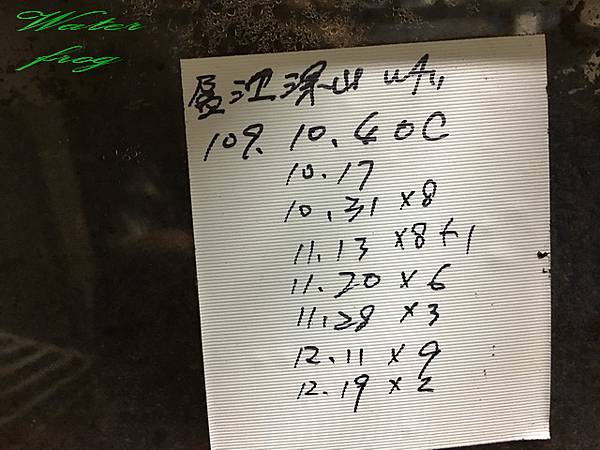 Water
frog
盈江深山 WF1
109. 10. 4 OC
10.17
10.31 x8
11.13 x8+1
11.20 x6
11.28 x3
12.11 x9
12.19 x2